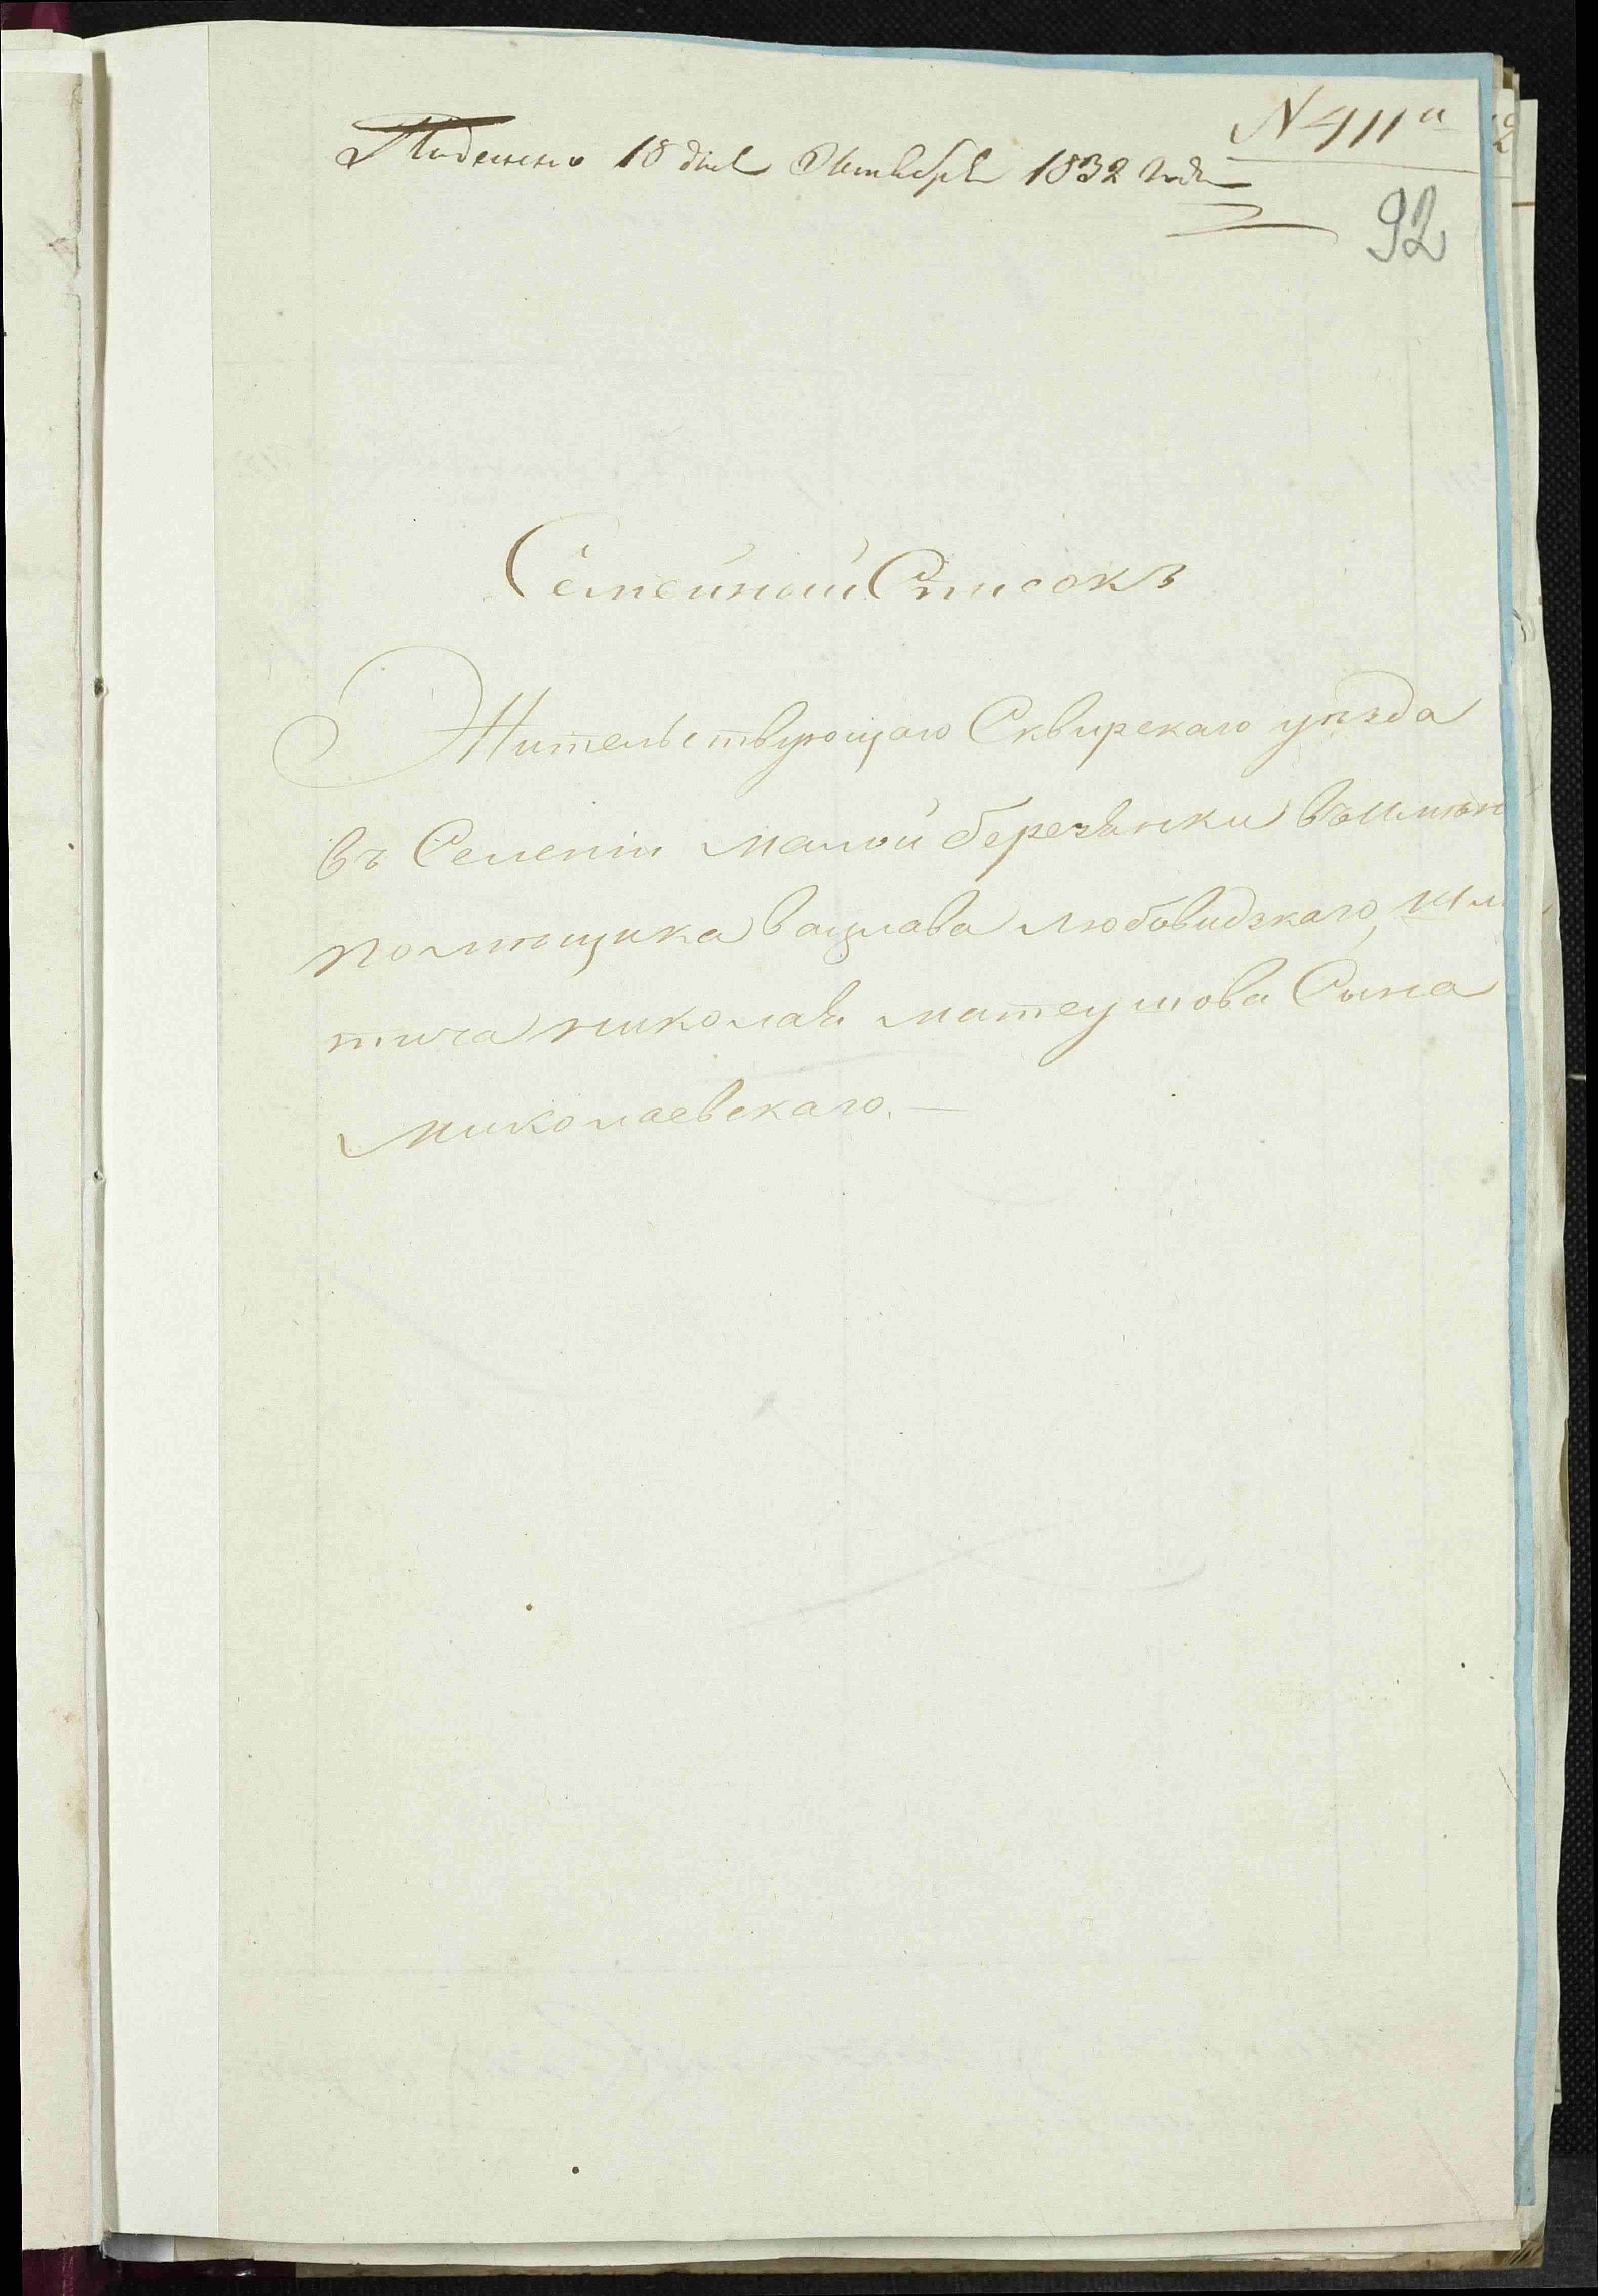 N 411й
Подано 18 дня Октября 1832 года
92
Семейный Списокъ
Жительствующаго Сквирскаго уезда
въ Селеніи малой березянки въ имѣн
помещика вацлава любовидзкаго, шля
тича николая матеушова Сына
миколаевскаго. —